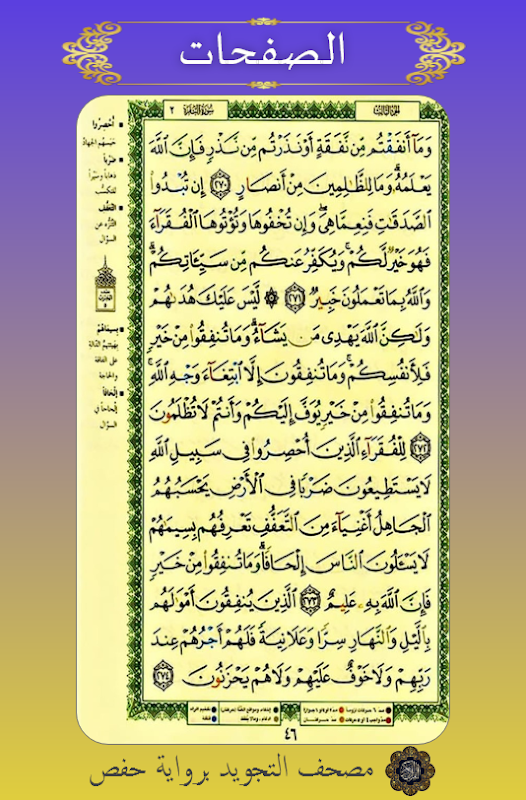 الصفحات
الجزء الثالث
سورة البقرة ٢
وَمَآ أَنفَقْتُم مِّن نَّفَقَةٍ أَوْ نَذَرْتُم مِّن نَّذْرٍ فَإِنَّ ٱللَّهَ
يَعْلَمُهُۥ ۗ وَمَا لِلظَّٰلِمِينَ مِنْ أَنصَارٍ ﴿٢٧٠﴾ إِن تُبْدُوا۟
ٱلصَّدَقَٰتِ فَنِعِمَّا هِىَ ۖ وَإِن تُخْفُوهَا وَتُؤْتُوهَا ٱلْفُقَرَآءَ
فَهُوَ خَيْرٌ لَّكُمْ ۚ وَيُكَفِّرُ عَنكُم مِّن سَيِّـَٔاتِكُمْ ۗ
وَٱللَّهُ بِمَا تَعْمَلُونَ خَبِيرٌ ﴿٢٧١﴾ ۞ لَّيْسَ عَلَيْكَ هُدَىٰهُمْ
وَلَٰكِنَّ ٱللَّهَ يَهْدِى مَن يَشَآءُ ۗ وَمَا تُنفِقُوا۟ مِنْ خَيْرٍ
فَلِأَنفُسِكُمْ ۚ وَمَا تُنفِقُونَ إِلَّا ٱبْتِغَآءَ وَجْهِ ٱللَّهِ ۚ
وَمَا تُنفِقُوا۟ مِنْ خَيْرٍ يُوَفَّ إِلَيْكُمْ وَأَنتُمْ لَا تُظْلَمُونَ
﴿٢٧٢﴾ لِلْفُقَرَآءِ ٱلَّذِينَ أُحْصِرُوا۟ فِى سَبِيلِ ٱللَّهِ
لَا يَسْتَطِيعُونَ ضَرْبًا فِى ٱلْأَرْضِ يَحْسَبُهُمُ
ٱلْجَاهِلُ أَغْنِيَآءَ مِنَ ٱلتَّعَفُّفِ تَعْرِفُهُم بِسِيمَٰهُمْ
لَا يَسْـَٔلُونَ ٱلنَّاسَ إِلْحَافًا ۗ وَمَا تُنفِقُوا۟ مِنْ خَيْرٍ
فَإِنَّ ٱللَّهَ بِهِۦ عَلِيمٌ ﴿٢٧٣﴾ ٱلَّذِينَ يُنفِقُونَ أَمْوَٰلَهُم
بِٱلَّيْلِ وَٱلنَّهَارِ سِرًّا وَعَلَانِيَةً فَلَهُمْ أَجْرُهُمْ عِندَ
رَبِّهِمْ وَلَا خَوْفٌ عَلَيْهِمْ وَلَا هُمْ يَحْزَنُونَ ﴿٢٧٤﴾
■ أُحْصِرُوا
حبسهم الجهاد
■ ضَرْبًا
ذهابًا وسيرًا
للتكسب
■ التَّعَفُّف
التنزه عن
السؤال
■ بِسِيمَاهُمْ
بهيئتهم الدالة
على الفاقة
والحاجة
■ إِلْحَافًا
إلحاحًا في
السؤال
٤٦
مصحف التجويد برواية حفص